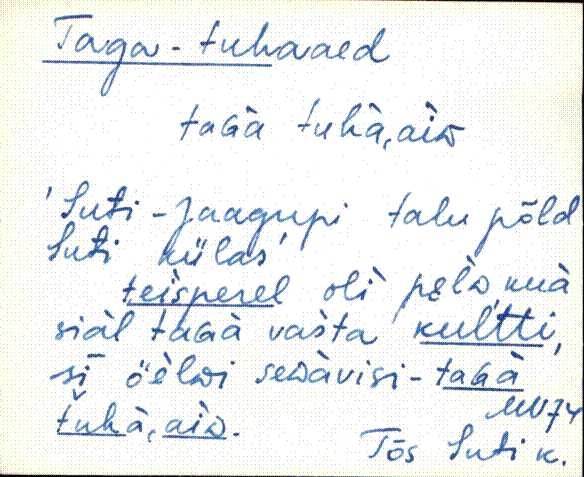 Taga-tuhaaed
taGà tuhà, aiᴅ
'Suti-Jaagupi talu põld
Suti külas'
teisperel oli
siàl taGà vašta kultti,
sī öèlᴅi seᴅàvisi-taGà
tuhà, aiᴅ.
MN74
Tõs Suti k.